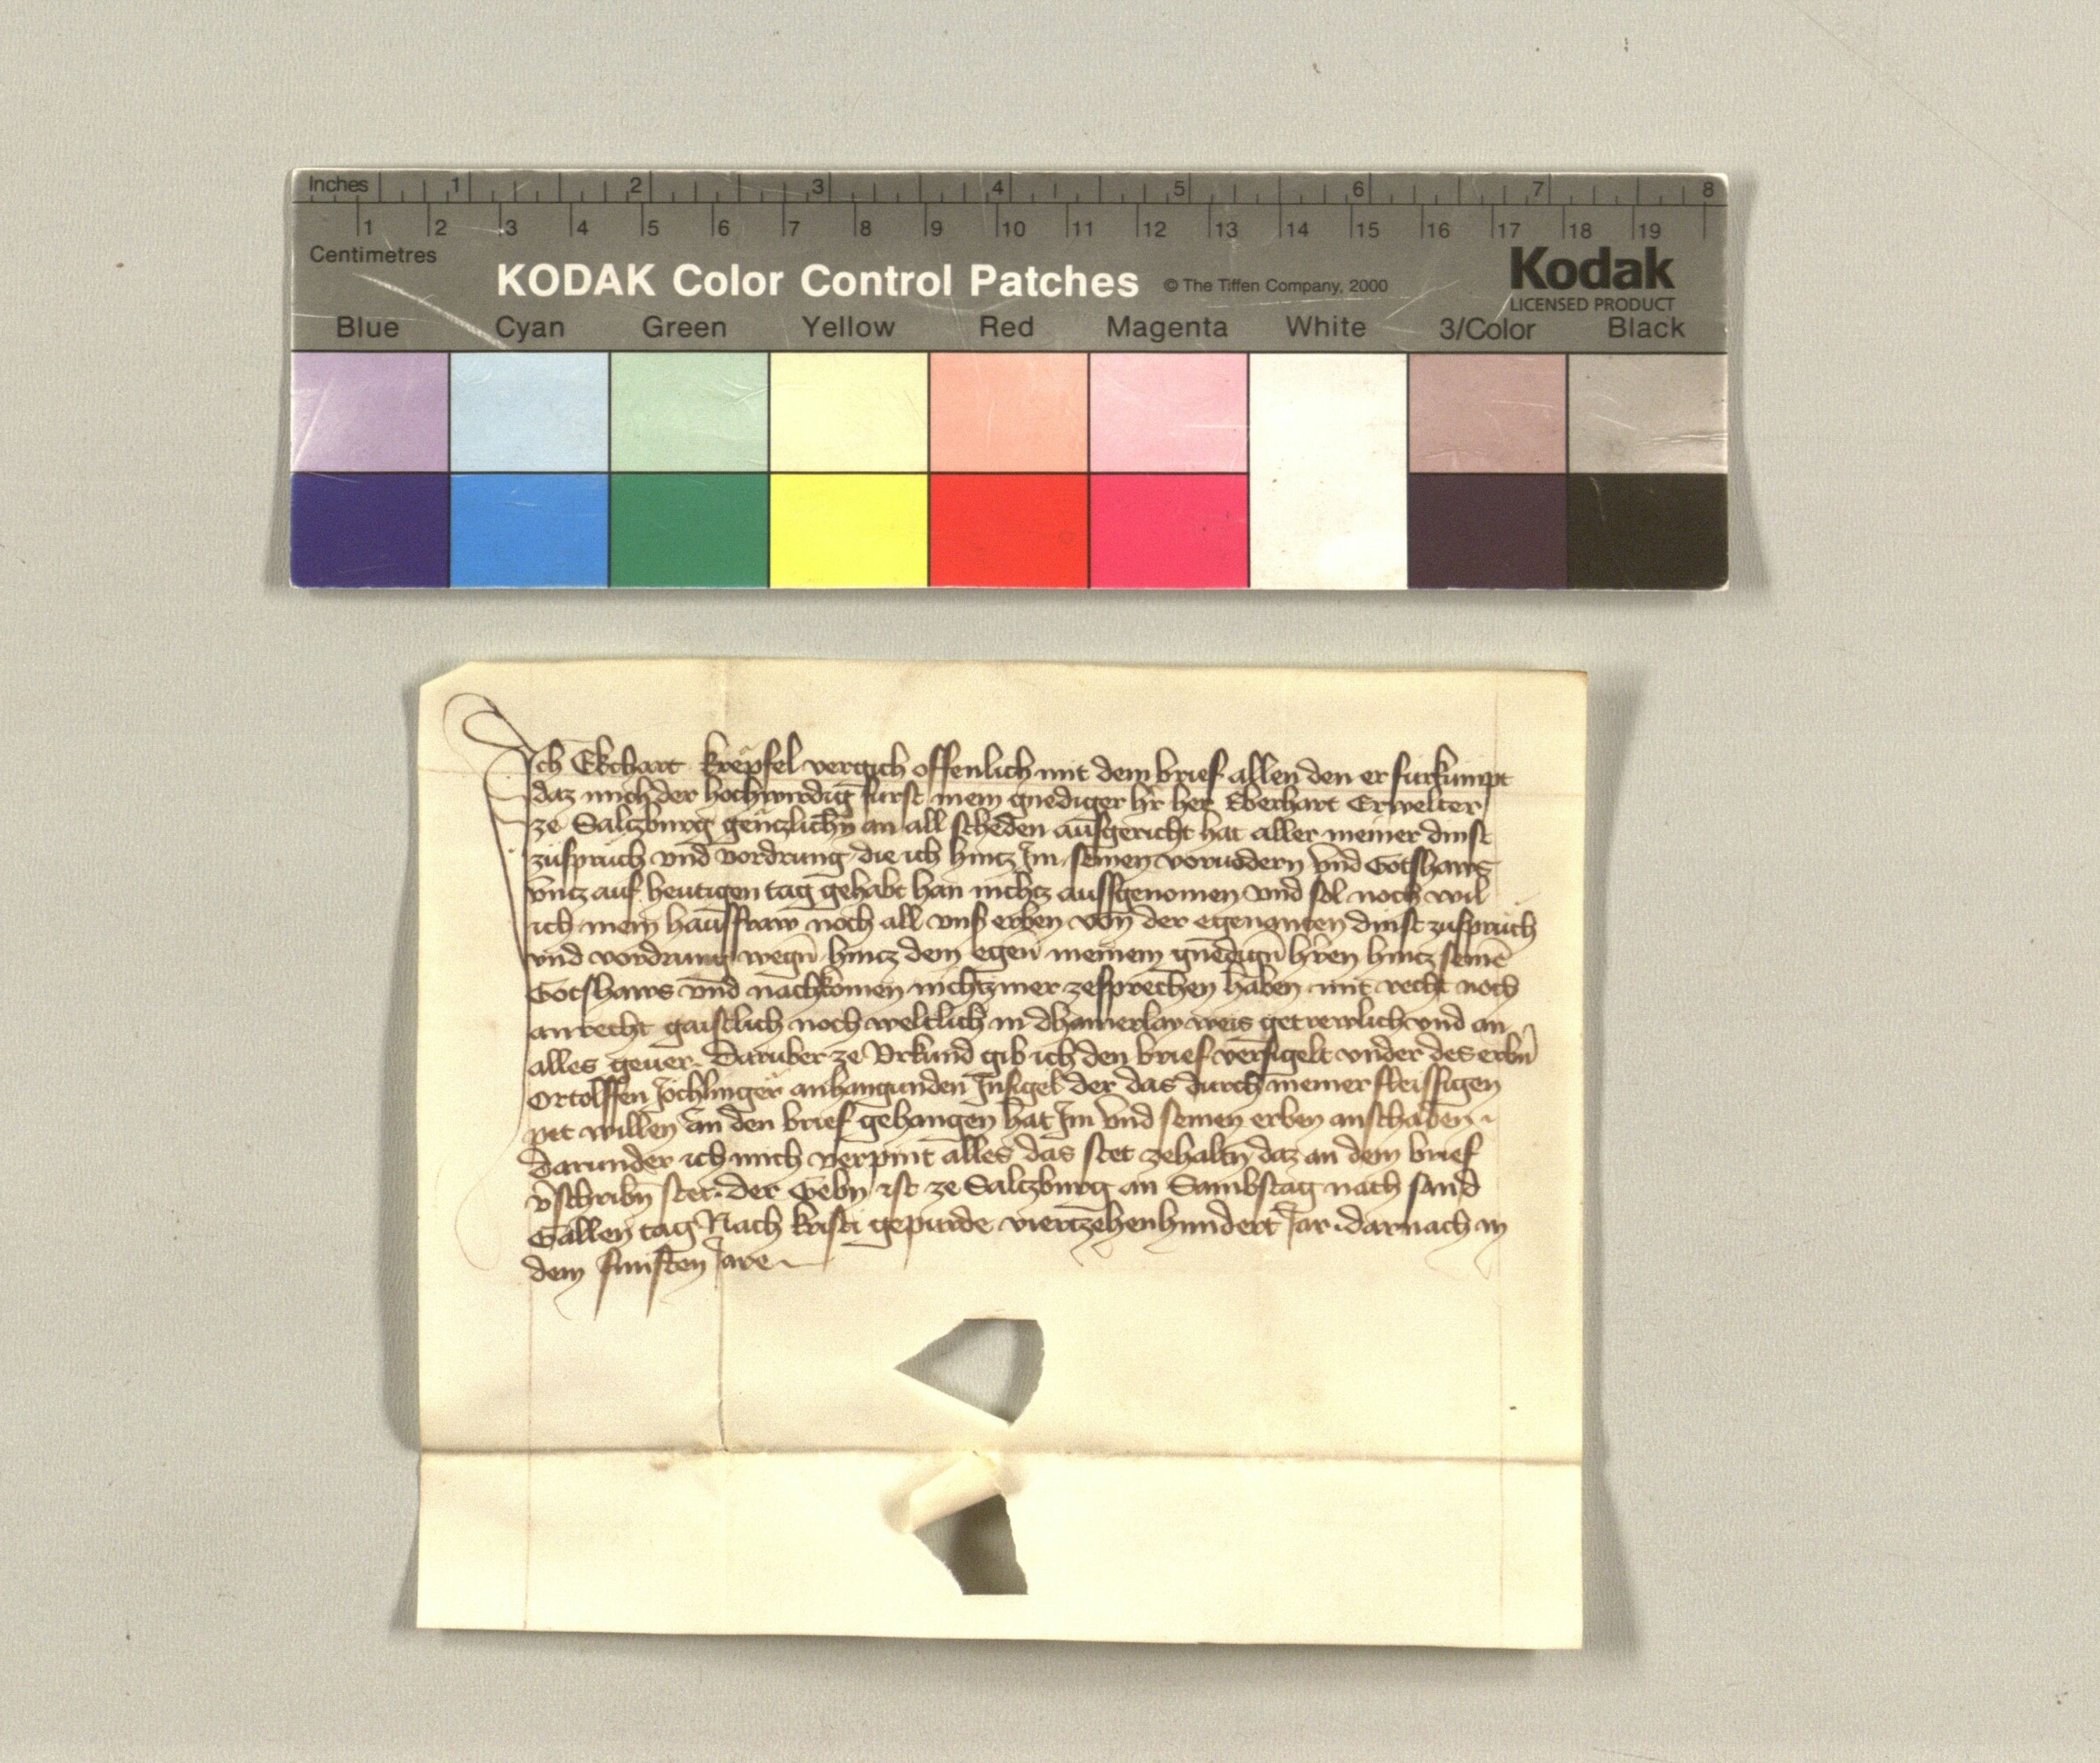 Inches 1 2 3 4 5 6 7 8
1 2 3 4 5 6 7 8 9 10 11 12 13 14 15 16 17 18 19
Centimetres
KODAK Color Control Patches © The Tiffen Company, 2000
Kodak
LICENSED PRODUCT
Blue Cyan Green Yellow Red Magenta White 3/Color Black
Ich Ekchart krepfel vergich offenlich mit dem brief allen den er furkumpt
daz mich der hochwirdig furst mein gnediger h̄r her Eberhart Erwelter
ze Saltzburg gentzlichn̄ an all scheden ausgericht hat aller meiner dinst
zuspruch vnd vordrung die ich hintz Im seinen voruodern vnd Gotshaws
vntz auf heutigen tag gehabt han nichtz aussgenomen vnd sol noch wil
ich mein hausfraw noch all vns erben von der egenanten dinst zuspruch
vnd vordrung wegn̄ hintz dem egen̄ meinem gnedign̄ h̄ren hintz seinē
Gotshaws vnd nachkomen nichtz mer zesprechen haben mit recht noch
anrecht gaistlich noch weltlich in dhainerlay weis getrewlich vnd an
alles geuer. Daruber ze Vrkund gib ich den brief versigelt vnder des erbn̄
Ortolffen Jochlinger anhangunden Insigel der das durch meiner fleissigen
pet willen an den brief gehangen hat Im vnd seinen erben an schaden
darunder ich mich verpint alles das stet zehaltn̄ daz an dem brief
v̄schribn̄ stet. der Gebn̄ ist ze Saltzburg an Sambstag nach sand
Gallen tag Nach kristi gepurde viertzehenhundert Jar darnach in
dem funften Jare